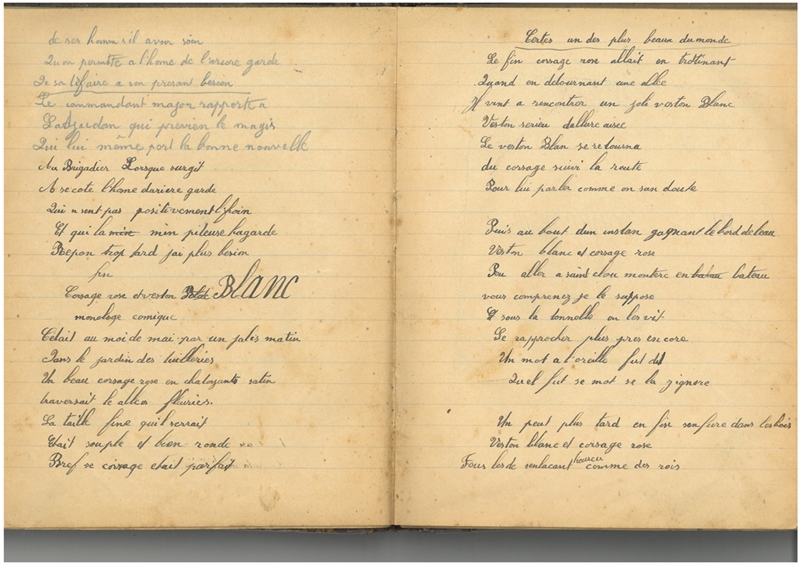 de ses hommes il avoir soin
Qu on permette a l home de l ariere garde
De sa tisfaire a son presant besoin
Le commandant major rapporte a
L adjudan qui previen le magis
Qui lui même port la bonne nouvelle
Au Brigadier Lorsque surgit
A se coté l home dariere garde
Qui n sent pas positevement l foin
Et qui la min piteuse hagarde
Repon trop tard j ai plus besoin
fin
Corsage rose et veston Blanc
monologe comique
C etait au moi de mai par un jolis matin
Dans le jardin des tuilleries
Un beau corsage rose en chatoyants satin
traversait le allees fleuries.
La taille fine qu il serrait
Etait souple et bien ronde
Bref se corsage etait parfait
Certes un des plus beaux du monde
Le fin corsage ron allait en trotinant
Quand en detournant une allée
Il vint a rencontrer un joli veston Blanc
Veston serieu d allure aisee
Le veston Blan se retourna
du corsage suivi la route
Pour lui parler comme on s an doute
Puis au bout d un instan gagnant le bord de leau
Veston blanc et corsage rose
Pou aller a saint clou montere en batau bateau
vous comprenez je le suppose
Et sous la tonnelle on les vit
Se rapprocher plus pres encore
Un mot a l oreille fut dit
Quel fut se mot se la j ignore
Un peut plus tard en fin sen fure dans les bois
Veston blanc et corsage rose
Tous les de senlacant heureux comme des rois